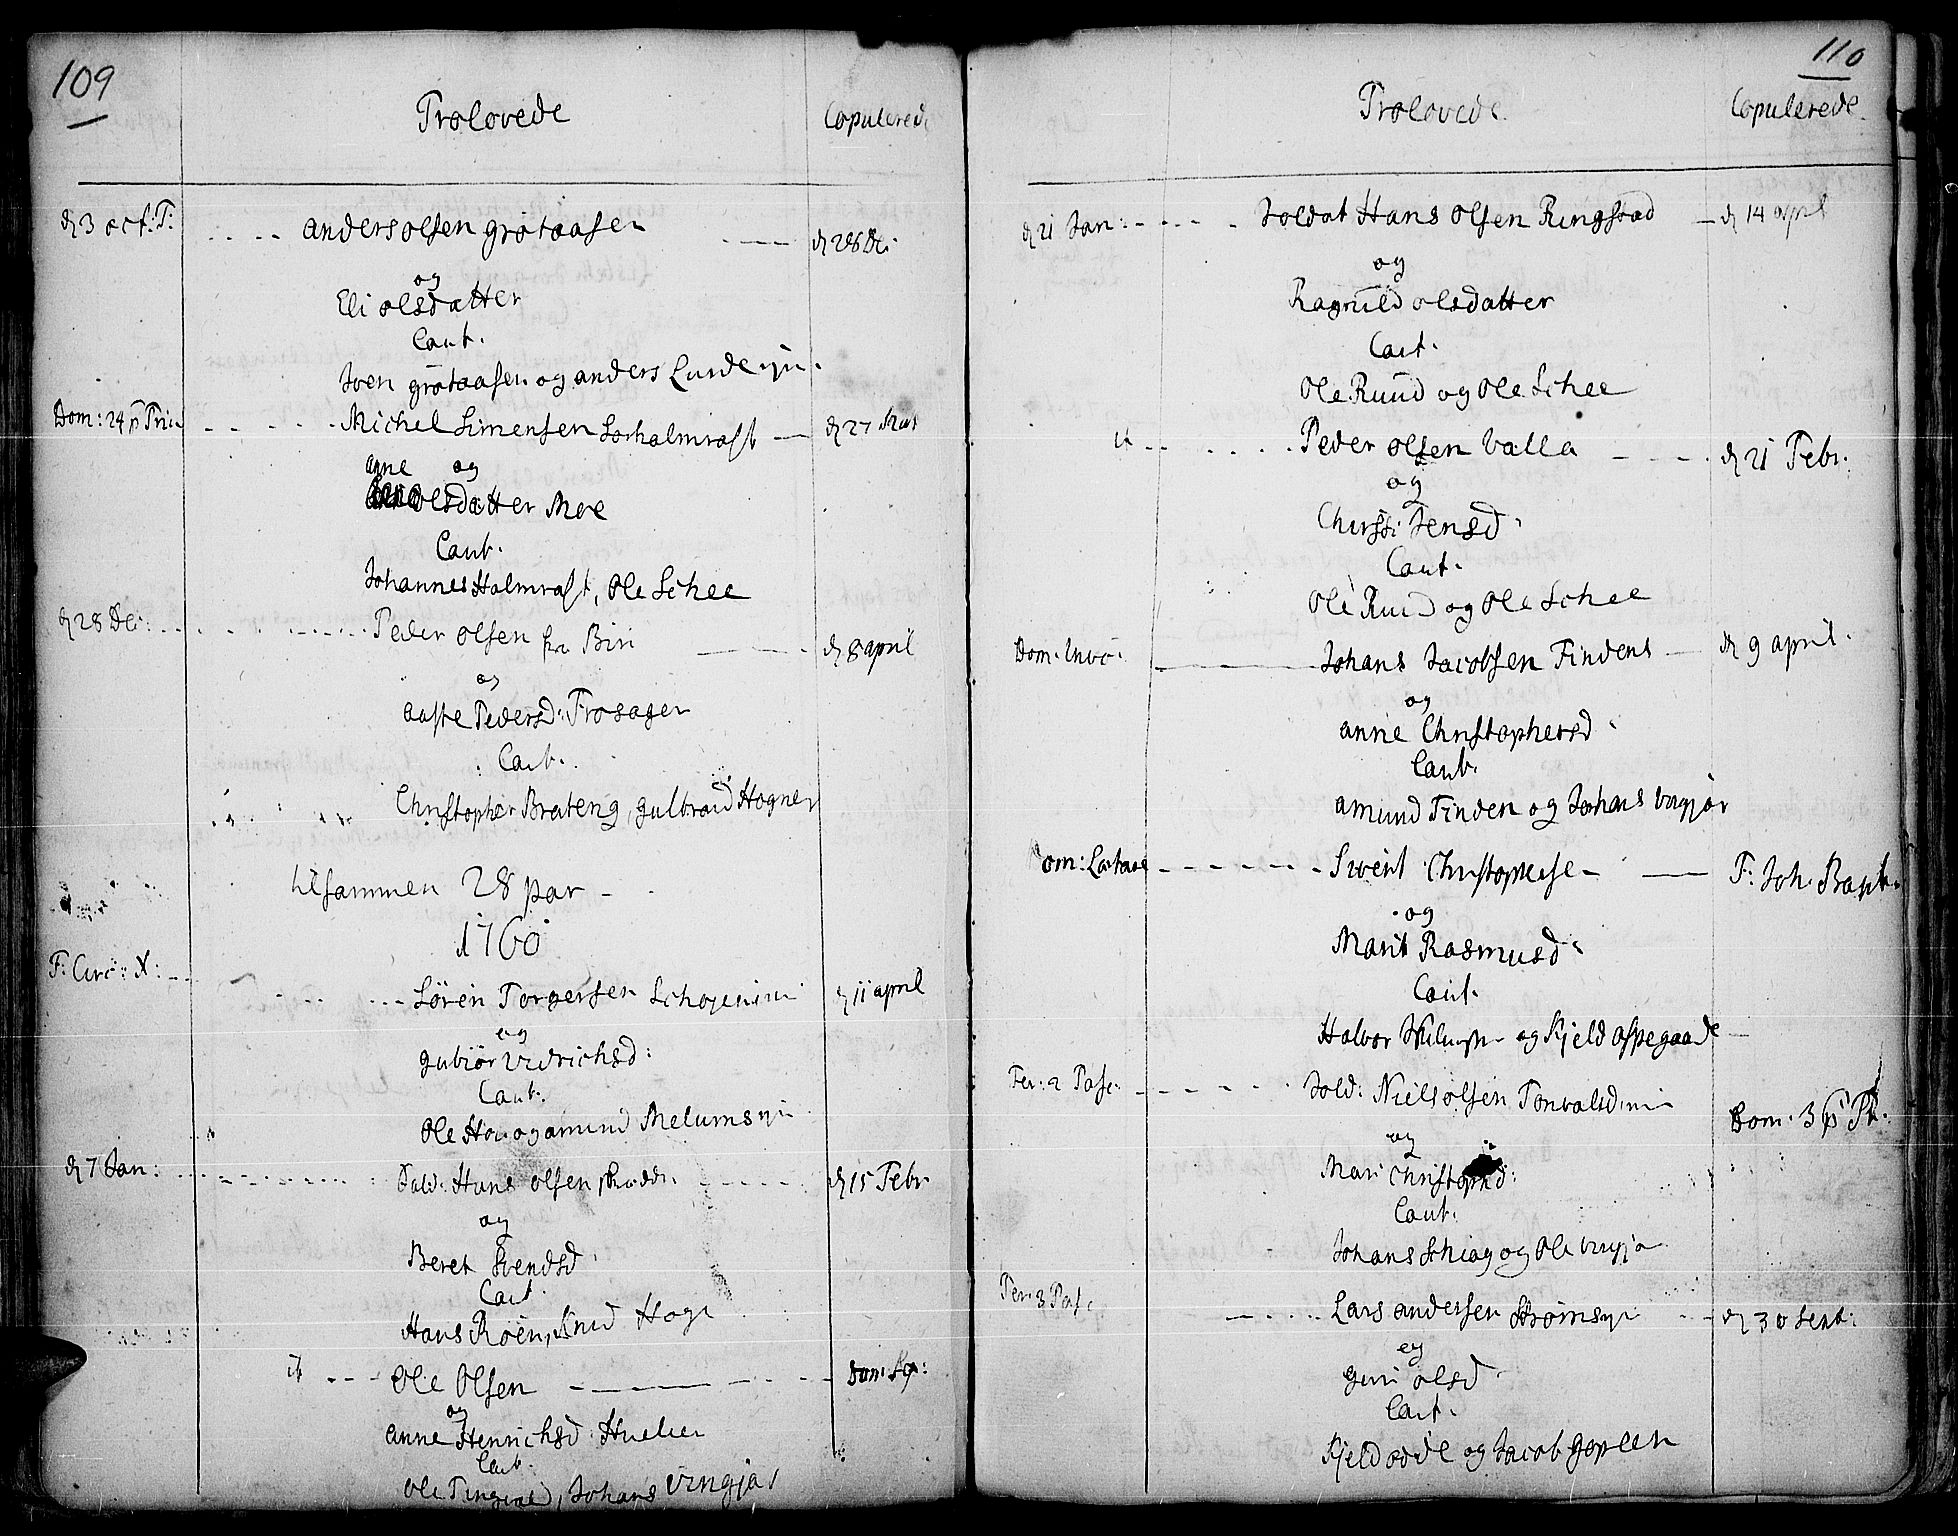 109
Trolovede Copulerede
d 3 oct: T: anders olsen grøtaasen d 28 De:
og
Eli olsdatter
Caut.
Iver grøtaasen og anders Lunde
Dom: 24 p Trin Michel Simensen Holmrast d 27 Mart
anne og
olsdatter Moe
Caut.
Johannes Holmrast, Ole Schee
d 28 De: Peder olsen fra Biri d 8 april
og
aaste Pedersd: Frosager
Caut.
Christopher Brateng, gulbrand Hogner
tilsammen 28 par
1760
F: Circ: X: Søren Torgersen d 11 april
og
gubiør
Caut.
Ole og amund Melums
d 7 Jan: Sold: Hans olsen d 15 Febr
og
Beret Svendsd.
Caut.
Hans Röen, Knud Hage
it Ole Olsen Dom:
og
anne Henrichsd:
Caut.
Ole Johans Vingjar
110
Trolovede Copulerede
d 21 Jan: Soldat Hans olsen Ringstad d 14 april
og
Ragnild olsdatter
Caut.
Ole Ruud og Ole Schee
it Peder olsen Valla d 21 Febr.
og
Chirsti Jensd:
Caut.
Ole Ruud og Ole Schee
Dom. Invo: Johans Jacobsen Findens d 9 april.
og
anne Christophersd
Caut.
amund Finden og Johans Vingjar
Dom: Lætare Svent Christophersen F: Joh: Bapt.
og
Marit Rasmusd:
Caut.
Halvor og Kjeld aspegaarde
Fer: 2 Pasc. Sold: Niels olsen Dom. 3 p
og
Mari Christophd:
Caut.
Johans Schiag og Ole Vingja
Fer: 3 Pasc Lars andersen Strøms d 30 Sept:
og
guri olsd
Caut.
Kjeld odde og Jacob goplen